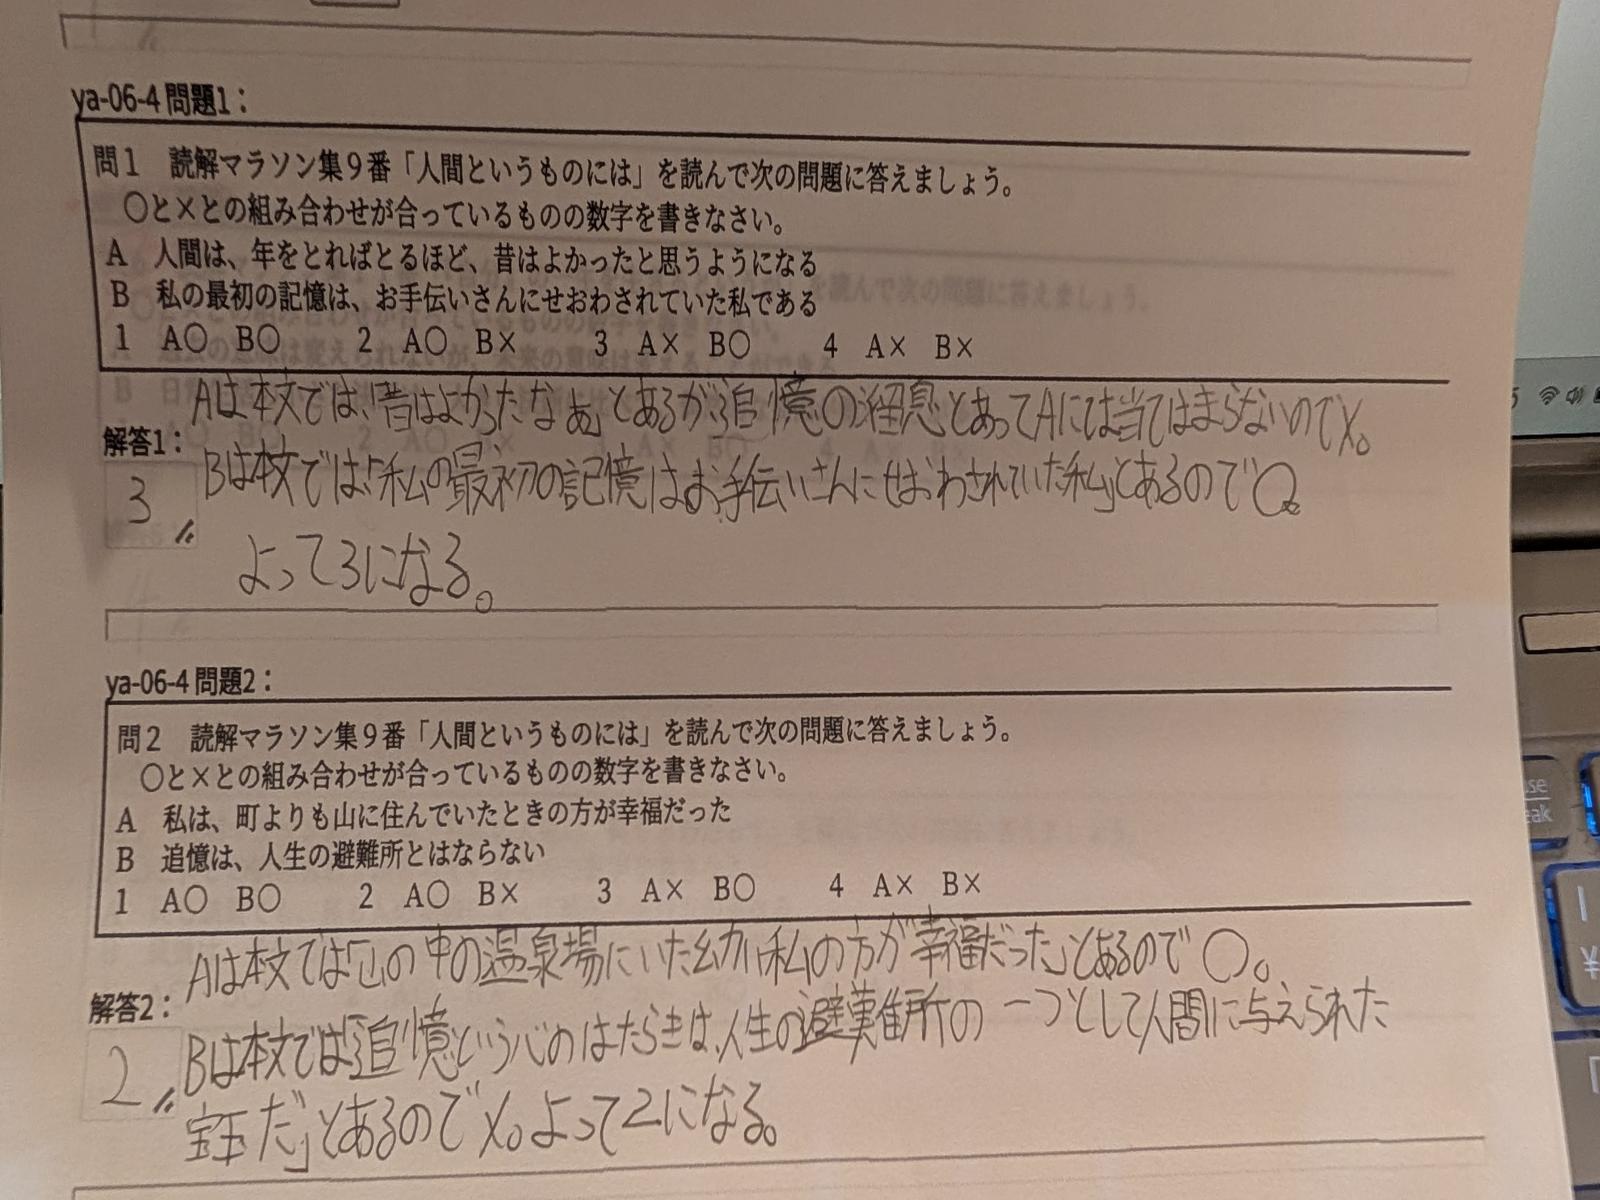 ya-06-4 問題1：
問1　読解マラソン集9番「人間というものには」を読んで次の問題に答えましょう。
○と×との組み合わせが合っているものの数字を書きなさい。
A　人間は、年をとればとるほど、昔はよかったと思うようになる
B　私の最初の記憶は、お手伝いさんにせおわされていた私である
1　A○　B○　　2　A○　B×　　3　A×　B○　　4　A×　B×
Aは本文では、「昔はよかったなぁ」とあるが、追憶の溜息とあってAには当てはまらないので×。
解答1：
Bは本文では「私の最初の記憶はお手伝いさんにせおわされていた私」とあるので○。
3
よって3になる。
ya-06-4 問題2：
問2　読解マラソン集9番「人間というものには」を読んで次の問題に答えましょう。
○と×との組み合わせが合っているものの数字を書きなさい。
A　私は、町よりも山に住んでいたときの方が幸福だった
B　追憶は、人生の避難所とはならない
1　A○　B○　　2　A○　B×　　3　A×　B○　　4　A×　B×
Aは本文では「山の中の温泉場にいた幼い私の方が幸福だった」とあるので○。
解答2：
Bは本文では「追憶という心のはたらきは、人生の避難所の一つとして人間に与えられた
2
宝玉だ」とあるので×。よって2になる。